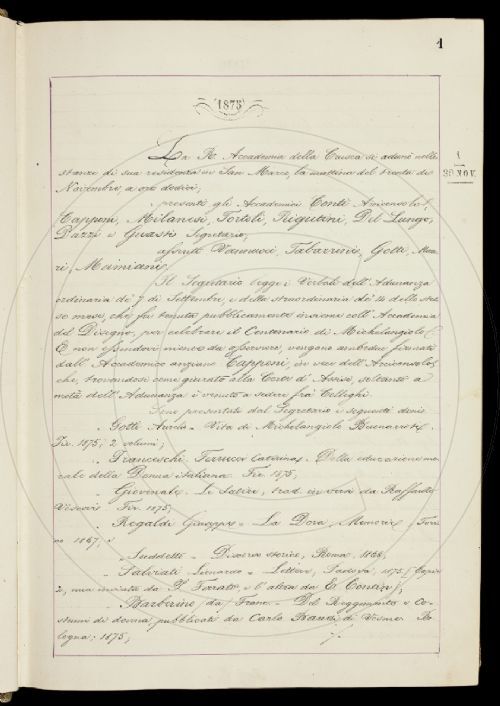 1
1875
La R. Accademia della Crusca si adunò nelle
stanze di sua residenza in San Marco, la mattina del trenta di
Novembre, a ore dodici;
1
30 NOV.
presenti gli Accademici Conti Arciconsolo,
Capponi, Milanesi, Tortoli, Rigutini, Del Lungo,
Dazzi e Guasti Segretario;
assenti Vannucci, Tabarrini, Gotti,
Mamiani.
Il Segretario legge i Verbali dell'Adunanza
ordinaria de' 7 di Settembre, e della straordinaria de' 14 dello stes-
so mese, che fu tenuta pubblicamente insieme coll'Accademia
del Disegno, per celebrare il Centenario di Michelangiolo.
E non essendovi niente da osservare, vengono ambedue firmati
dall'Accademico anziano Capponi, in vece dell'Arciconsolo,
che, trovandosi come giurato alla Corte d'Assise, soltanto a
metà dell'Adunanza è venuto a sedere fra' Colleghi.
Sono presentati dal Segretario i seguenti doni:
Gotti Aurelio - Vita di Michelangiolo Buonarroti.
Fir. 1875, 2 volumi;
Franceschi Ferrucci Caterina - Della educazione mo-
rale della Donna italiana. Fir. 1875;
Giovenale - Le Satire, trad. in versi da Raffaello
Vescovi. Fir. 1875;
Regaldi Giuseppe - La Dora, Memorie, Tori-
no 1867; e
Suddetti - storico, Roma,
Salviati Lionardo - Lettere, Padova, 1875, (Copie
2, una inviata da P. Ferrato, e l'altra da Contin);
Barberino (da) Franc. - Del Reggimento e Co-
stumi di donna, pubblicati da Carlo Baudi di Vesme. Bo-
logna, 1875;